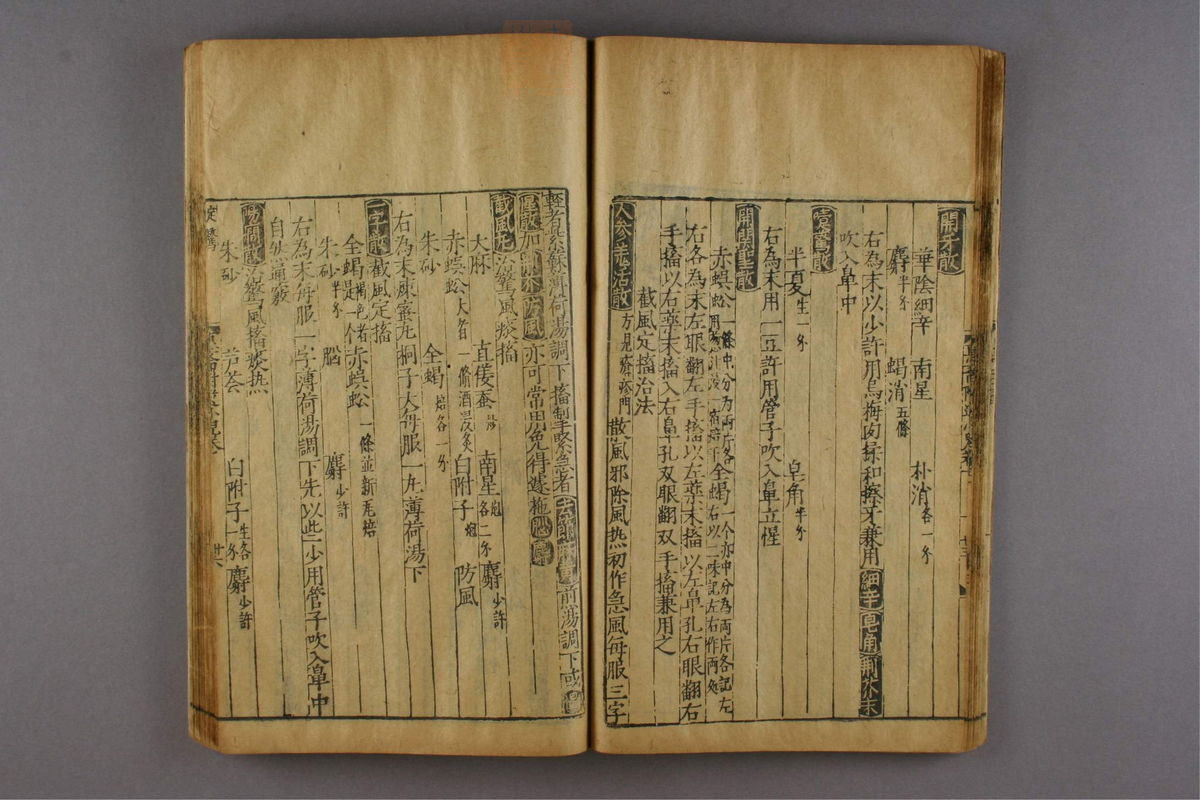 開牙散
華陰細辛 南星 朴消各一分
麝半分 蝎消五條
右為末以少許用烏梅肉揉和擦牙兼用細辛皂角荆芥末
吹入鼻中
半夏生一分 皂角半分
右為末用一豆許用管子吹入鼻立惺
開關聖散
赤蜈蚣一條中分為兩片各 全蝎一个亦中分為兩片各記左右以二味記左右作両處
右各為末左眼翻左手搐以左藥末搐以左鼻孔右眼翻右
手搐以右藥末搐入右鼻孔双眼翻双手搐兼用之
截風定搐治法
人参羌活散方見瘡疹門 散風邪除風热初作急風每服三字
輕者紫蘇薄荷湯調下搐掣緊急者去節麻黄煎湯調下或
散加荆芥防風亦可常用免得遽施
截風丸治驚風痰搐
天麻 直僵蚕炒 南星炮各二分 麝少許
赤蜈蚣大者一條酒浸炙 白附子炮 防風
朱砂 全蝎焙各一分
右為末煉蜜丸桐子大每服一丸薄荷湯下
一字散截風定搐
全蝎褐色者是一个 赤蜈蚣一條並新瓦焙
朱砂半分 腦 麝少許
右為末每服一字薄荷湯調下先以些少用管子吹入鼻中
自然通竅
治驚風搐痰热
朱砂 芦荟 白附子生各一分 麝少許
定驚